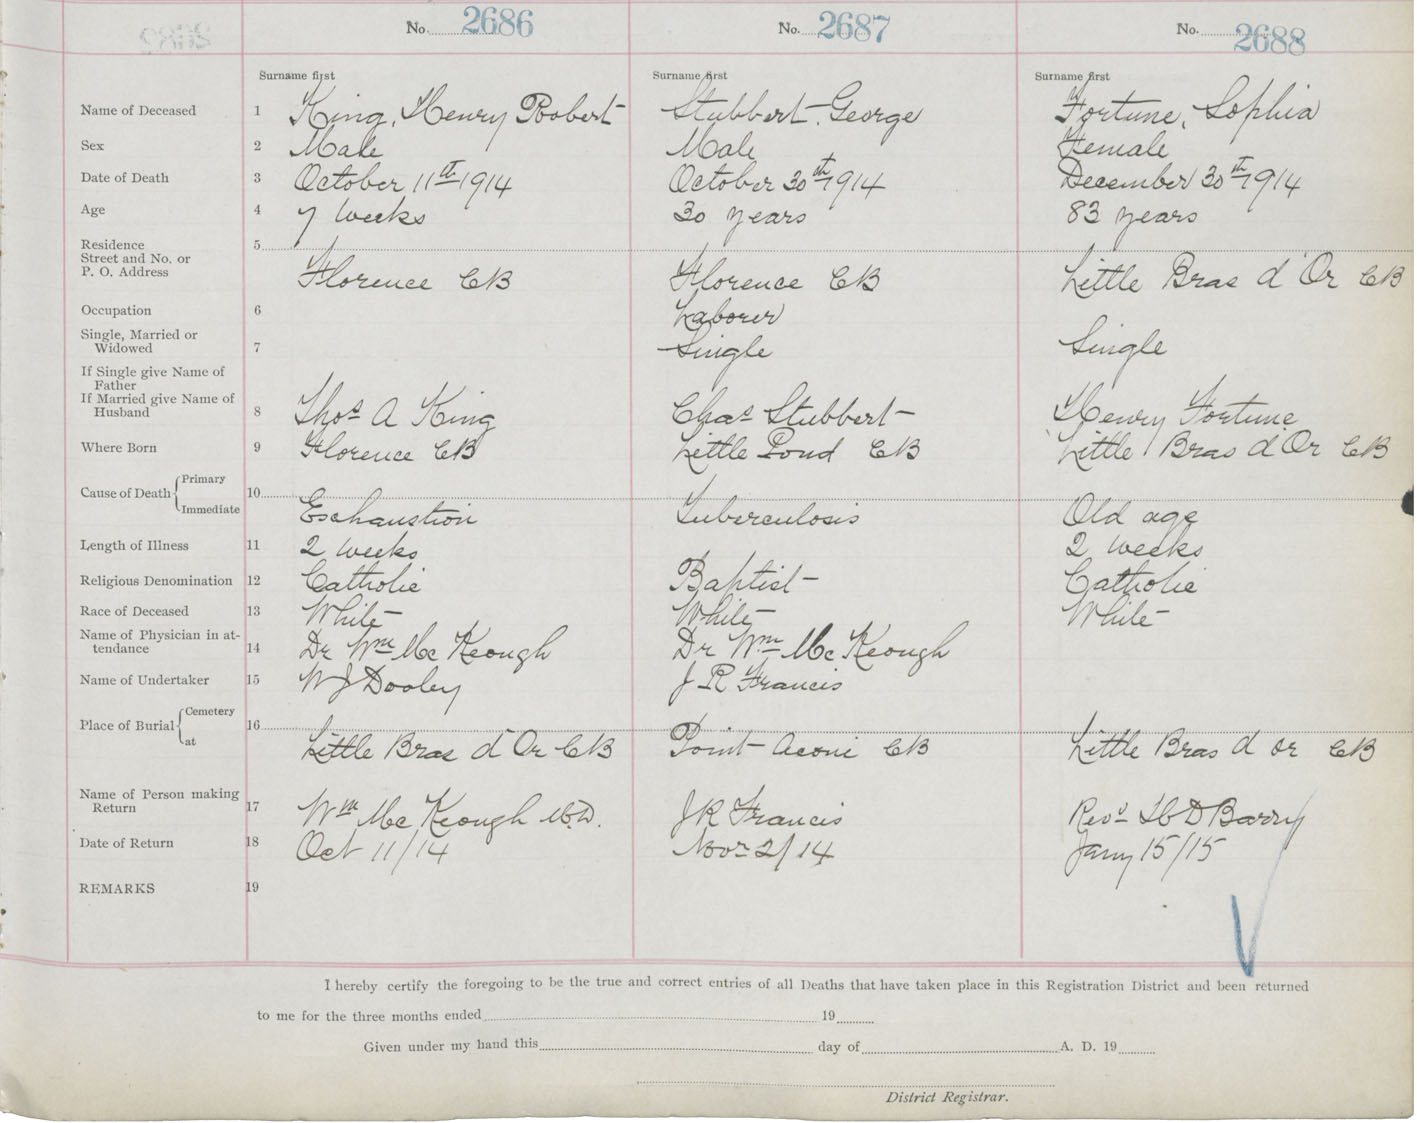 No. 2686 No. 2687 No. 2688
Surname first Surname first Surname first
Name of Deceased 1 King, Henry Robert Stubbert, George Fortune, Sophia
Sex 2 Male Male Female
Date of Death 3 October 11th 1914 October 30th 1914 December 30th 1914
Age 4 7 weeks 30 years 83 years
Residence 5
Street and No. or
P. O. Address Florence CB Florence CB Little Bras d'Or CB
Occupation 6 Laborer
Single, Married or
Widowed 7 Single Single
If Single give Name of
Father
If Married give Name of
Husband 8 Thos A King Chas Stubbert Henry Fortune
Where Born 9 Florence CB Little Pond CB Little Bras d'Or CB
Primary
Cause of Death 10
Immediate Exhaustion Tuberculosis Old age
Length of Illness 11 2 weeks 2 weeks
Religious Denomination 12 Catholic Baptist Catholic
Race of Deceased 13 White White White
Name of Physician in at-
tendance 14 Dr Wm McKeough Dr Wm McKeough
Name of Undertaker 15 W J Dooley J R Francis
Cemetery
Place of Burial 16
at Little Bras d'Or CB Point Aconi CB Little Bras d or CB
Name of Person making
Return 17 Wm McKeough M.D. J R Francis Revd D Barry
Date of Return 18 Oct 11/14 Novr 2/14 Jany 15/15
REMARKS 19
I hereby certify the foregoing to be the true and correct entries of all Deaths that have taken place in this Registration District and been returned
to me for the three months ended 19
Given under my hand this day of A. D. 19
District Registrar.